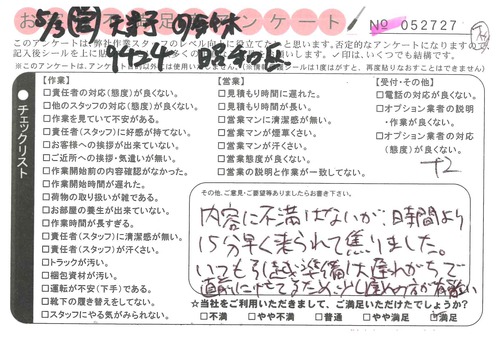 お客様不満足度アンケート
No 052727
5/3
このアンケートは、弊社作業スタッフのレベル向上に役立てたいと思います。否定的なアンケートになりますので
記入後シールを上に貼
印は、いくつでも結構です。
【作業】
□責任者の対応(態度)が良くない。
□他のスタッフの対応(態度)が良くない。
□作業を見ていて不安がある。
□責任者(スタッフ)に好感が持てない。
□お客様への挨拶が出来ていない。
□ご近所への挨拶・気遣いが無い。
□作業開始前の内容確認がなかった。
□作業開始時間が遅れた。
□荷物の取り扱いが雑である。
□お部屋の養生が出来ていない。
□作業時間が長すぎる。
□責任者(スタッフ)に清潔感が無い。
□責任者(スタッフ)が汗くさい。
□トラックが汚い。
□梱包資材が汚い。
□運転が不安(下手)である。
□靴下の履き替えをしてない。
□スタッフにやる気がみられない。
チェックリスト
【営業】
□見積もり時間に遅れた。
□見積もり時間が長い。
□営業マンに清潔感が無い。
□営業マンが煙草くさい。
□営業マンが汗くさい。
□営業態度が良くない。
□営業の説明と作業が一致してない。
【受付・その他】
□電話の対応が良くない。
□オプション業者の説明
・作業が良くない。
□オプション業者の対応
(態度)が良くない。
その他、ご意見・ご要望等ありましたらお書き下さい。
内容に不満はないが、時間より
15分早く来られて焦りました。
いつも引越準備は遅れがちで
直前に
☆当社をご利用いただきまして、ご満足いただけたでしょうか?
□不満 □やや不満 □普通 □やや満足 □満足